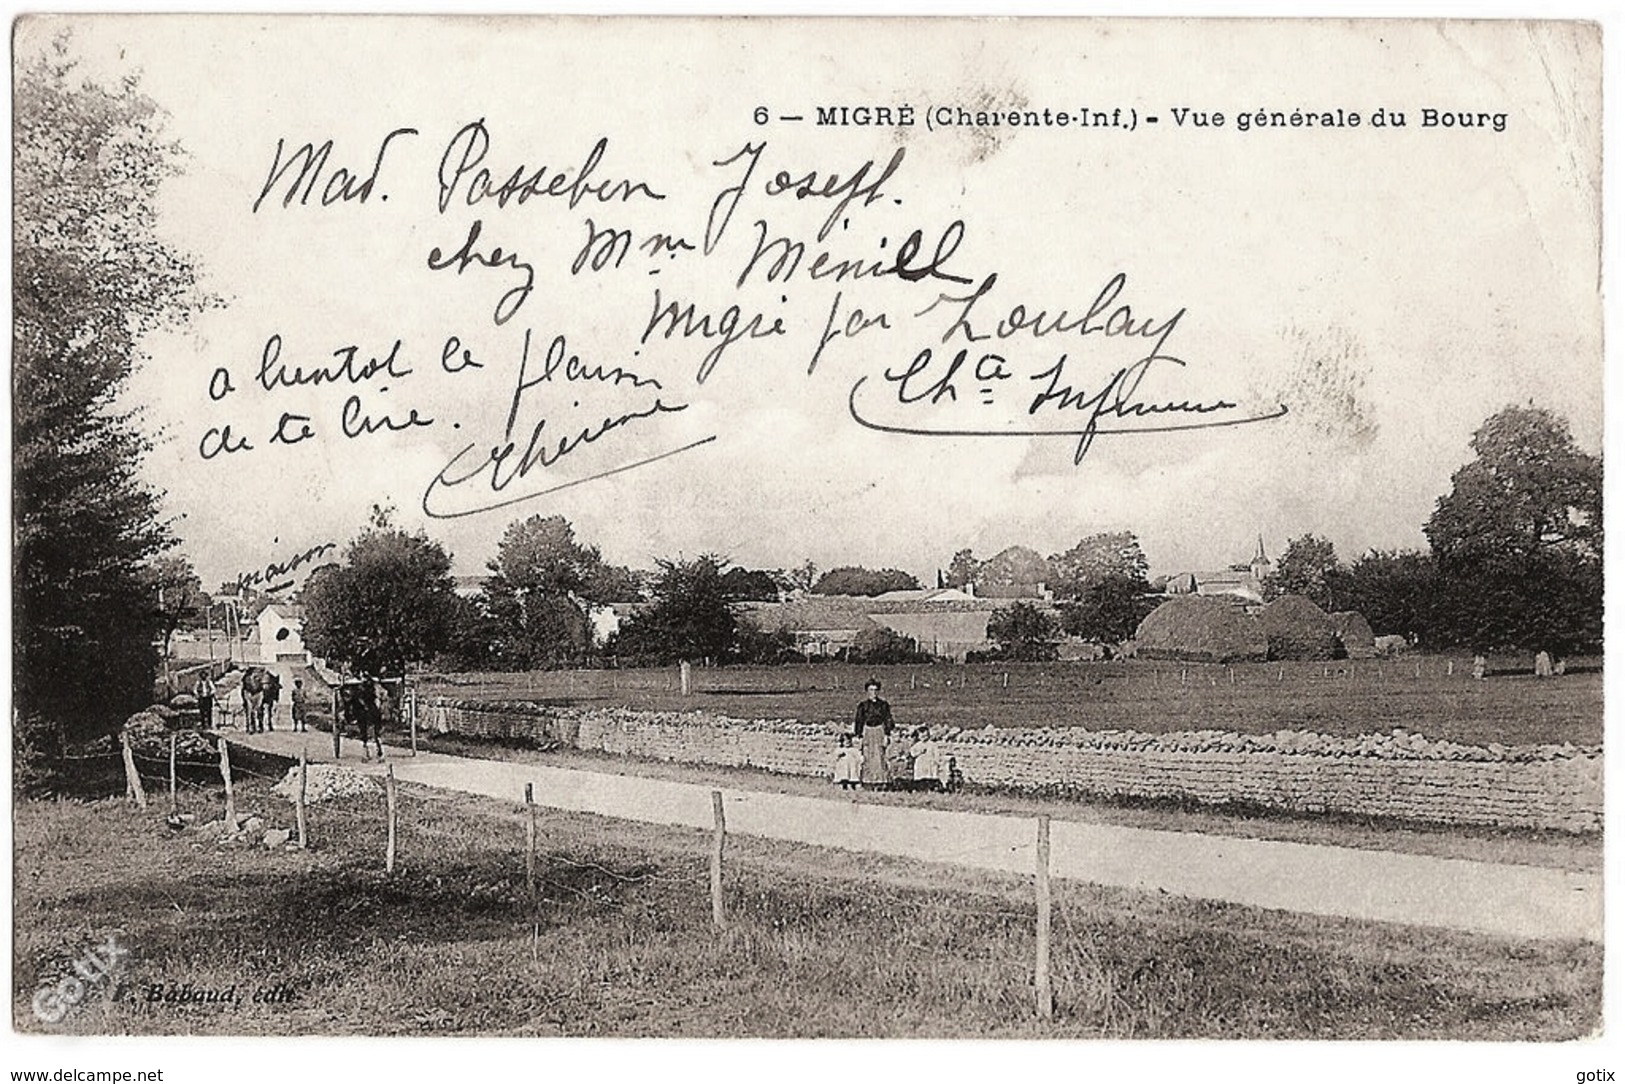 6 — MIGRÉ (Charente-Inf.) - Vue générale du Bourg
Mad. Passebon Joseph.
chez Mme Ménill
Migré par Loulay
Chte Inférieure
a bientot le plaisir
de te lire.
Thérène
maison
F. Babaud, édit.
Gotix
delcampe.net
gotix